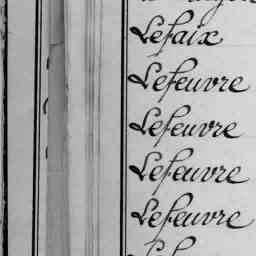 Lefaix
Lefeuvre
Lefeuvre
Lefeuvre
Lefeuvre